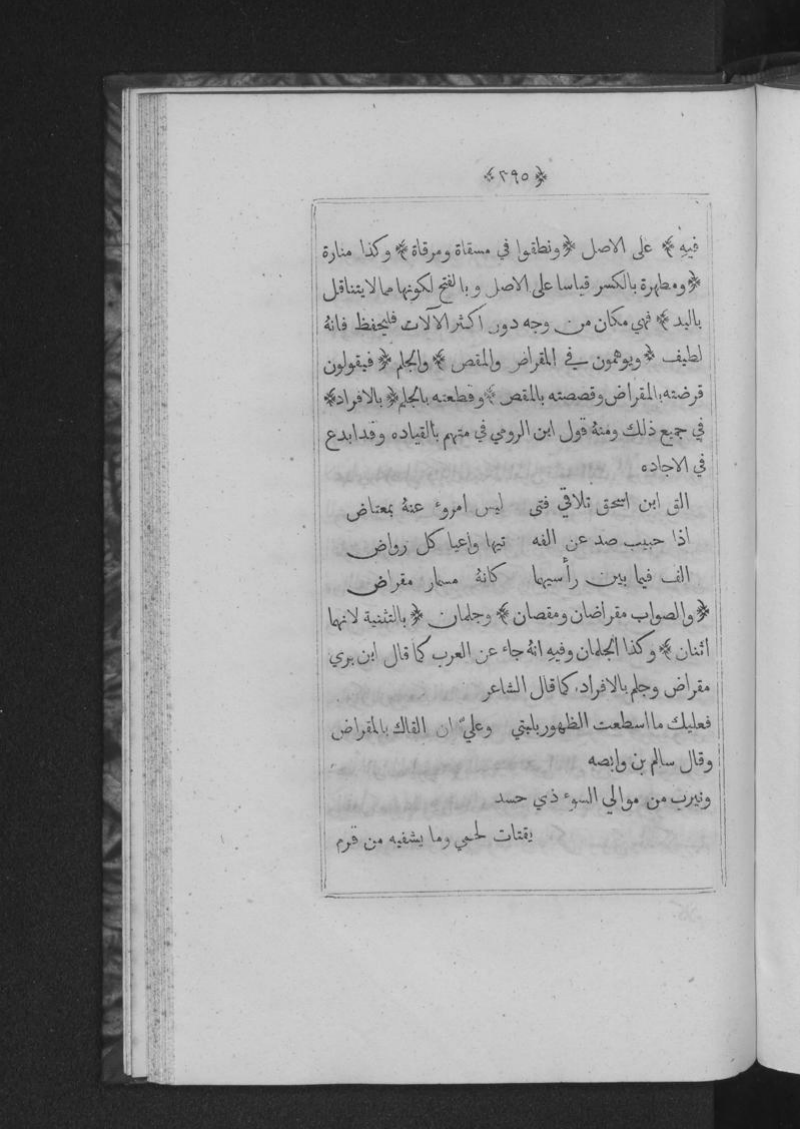 ﴿٢٩٥﴾
فيهِ ﴾ على الاصل ﴿ ونطقوا في مسقاة ومرقاة ﴾ وكذا منارة
﴿ ومطهرة بالكسر قياسا على الاصل وبالفتح لكونها مما لا يتناقل
باليد ﴾ فهي مكان من وجه دون اكثر الآلات فليحفظ فانهُ
لطيف ﴿ ويوهمون في المقراض والمقص ﴾ والجلم ﴿ فيقولون
قرضته بالمقراض وقصصته بالمقص ﴾ وقطعته بالجلم ﴿ بالافراد ﴾
في جميع ذلك ومنهُ قول ابن الرومي في متهم بالقياده وقد ابدع
في الاجاده
الق ابن اسحق تلاقي فتى ليس امروء عنهُ بمعتاض
اذا حبيب صد عن الفه تيها واعيا كل رواض
الف فيما بين رأسيهما كانهُ مسمار مقراض
﴿ والصواب مقراضان ومقصان ﴾ وجلمان ﴿ بالتثنية لانهما
اثنان ﴾ وكذا الجلمان وفيهِ انهُ جاء عن العرب كما قال ابن بري
مقراض وجلم بالافراد. كما قال الشاعر
فعليك ما اسطعت الظهور بلمتي وعليَّ ان القاك بالمقراض
وقال سالم بن وابصه
ونيرب من موالي السوء ذي حسد
يقتات لحمي وما يشفيه من قرم